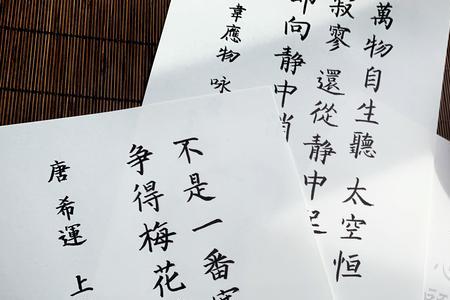 萬物自生聽 太空恒
寂寥 還從靜中起
向靜中消
韋應物 咏
不是一番寒
争得梅花
唐 希運 上